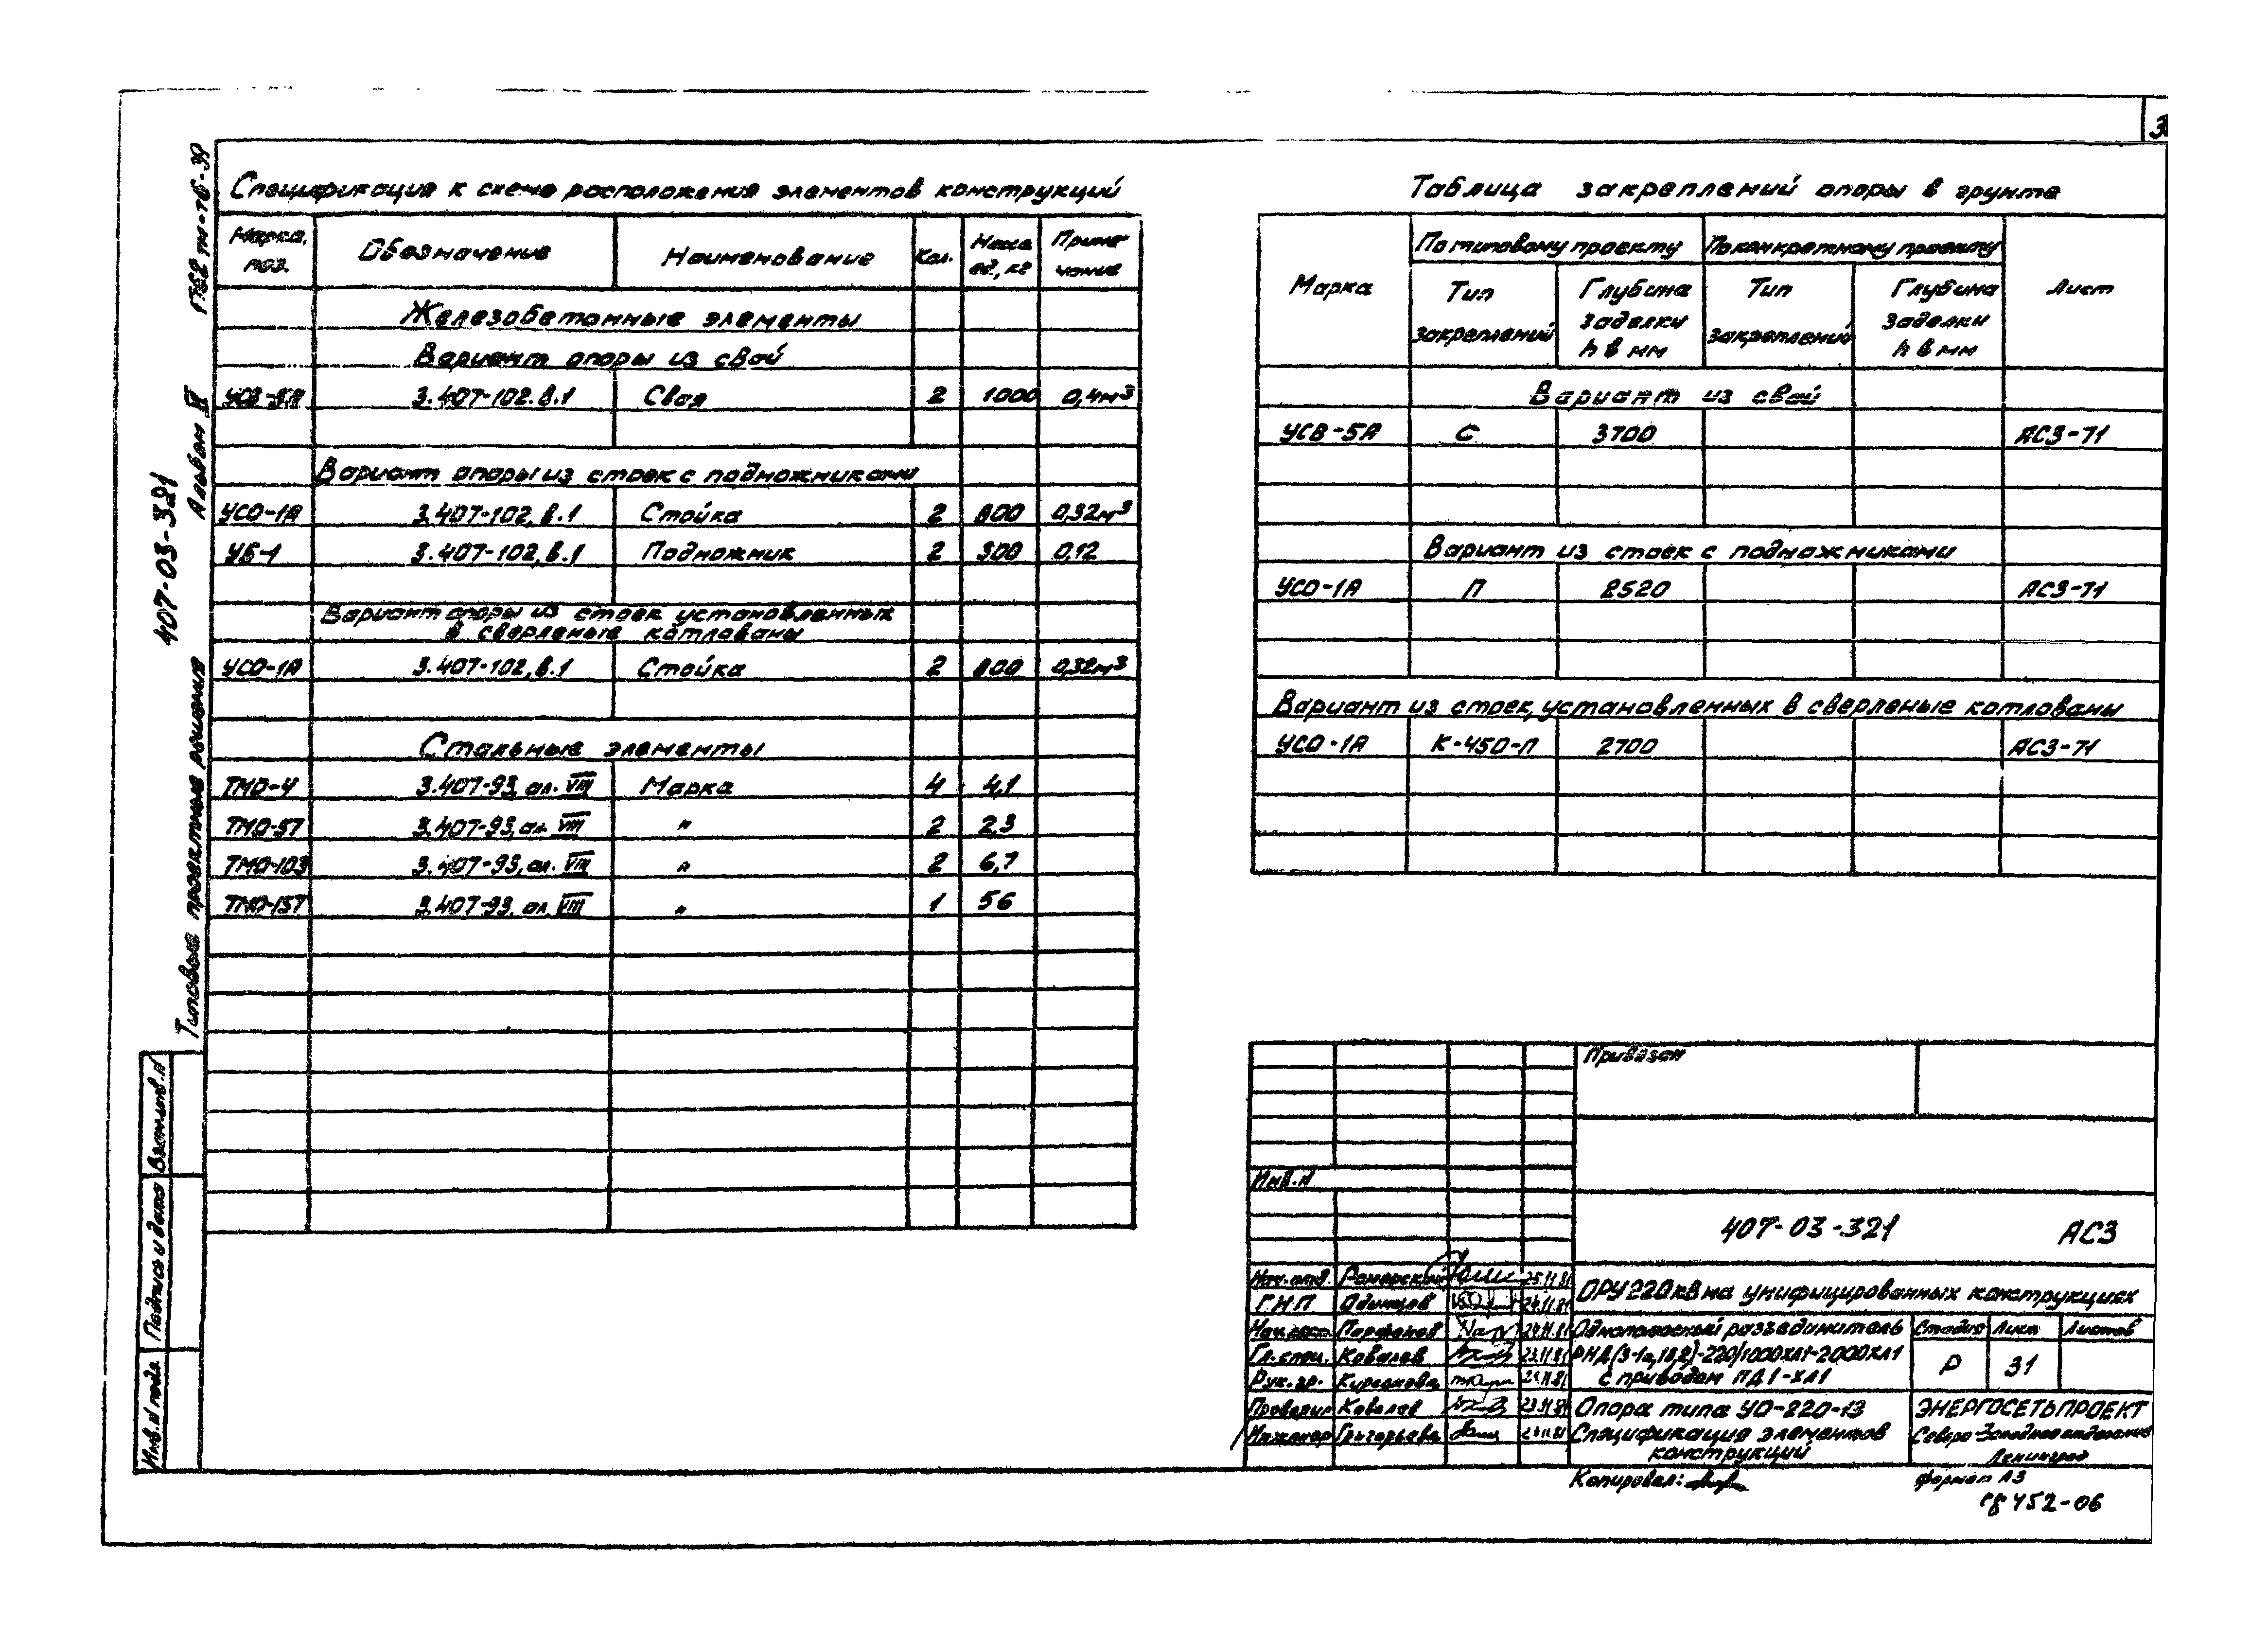 Спецификация к схеме расположения элементов конструкций
Марка, поз. Обозначение Наименование Кол. Масса ед., кг Примечание
Железобетонные элементы
Вариант опоры из свай
УСВ-5А 3.407-102.в.1 Свая 2 1000 0,4м³
Вариант опоры из стоек с подножниками
УСО-1А 3.407-102, в.1 Стойка 2 800 0,32м³
УБ-1 3.407-102, в.1 Подножник 2 300 0,12
Вариант опоры из стоек установленных
в сверленые котлованы
УСО-1А 3.407-102, в.1 Стойка 2 800 0,32м³
Стальные элементы
ТМО-4 3.407-93, ал. VIII Марка 4 4,1
ТМО-57 3.407-93, ал. VIII " 2 2,3
ТМО-103 3.407-93, ал. VIII " 2 6,7
ТМО-137 3.407-93, ал. VIII " 1 56
Таблица закреплений опоры в грунте
Марка По типовому проекту По конкретному проекту Лист
Тип закреплений Глубина заделки h в мм Тип закреплений Глубина заделки h в мм
Вариант из свай
УСВ-5А С 3700 АС3-71
Вариант из стоек с подножниками
УСО-1А П 2520 АС3-71
Вариант из стоек, установленных в сверленые котлованы
УСО-1А К-450-П 2700 АС3-71
Типовые проектные решения
407-03-321
Альбом
Взам.инв.N
Подпись и дата
Инв.N подл.
Привязан
Инв.N
407-03-321 АС3
ОРУ 220кВ на унифицированных конструкциях
Нач.отд. Роменский 25.11.81
ГИП Одинцов 24.11.81
Парфенов 24.11.81
Гл.спец. Ковалев 23.11.81
Рук.гр. Кирсанова 23.11.81
Проверил Ковалев 23.11.81
Инженер Григорьева 23.11.81
Однополюсный разъединитель
РНД(З-1а,1б,2)-220/1000ХЛ1-2000ХЛ1
с приводом ПД1-ХЛ1
Стадия Лист Листов
Р 31
Опора типа УО-220-13
Спецификация элементов
конструкций
ЭНЕРГОСЕТЬПРОЕКТ
Северо-Западное отделение
Ленинград
Копировал:
формат А3
452-06